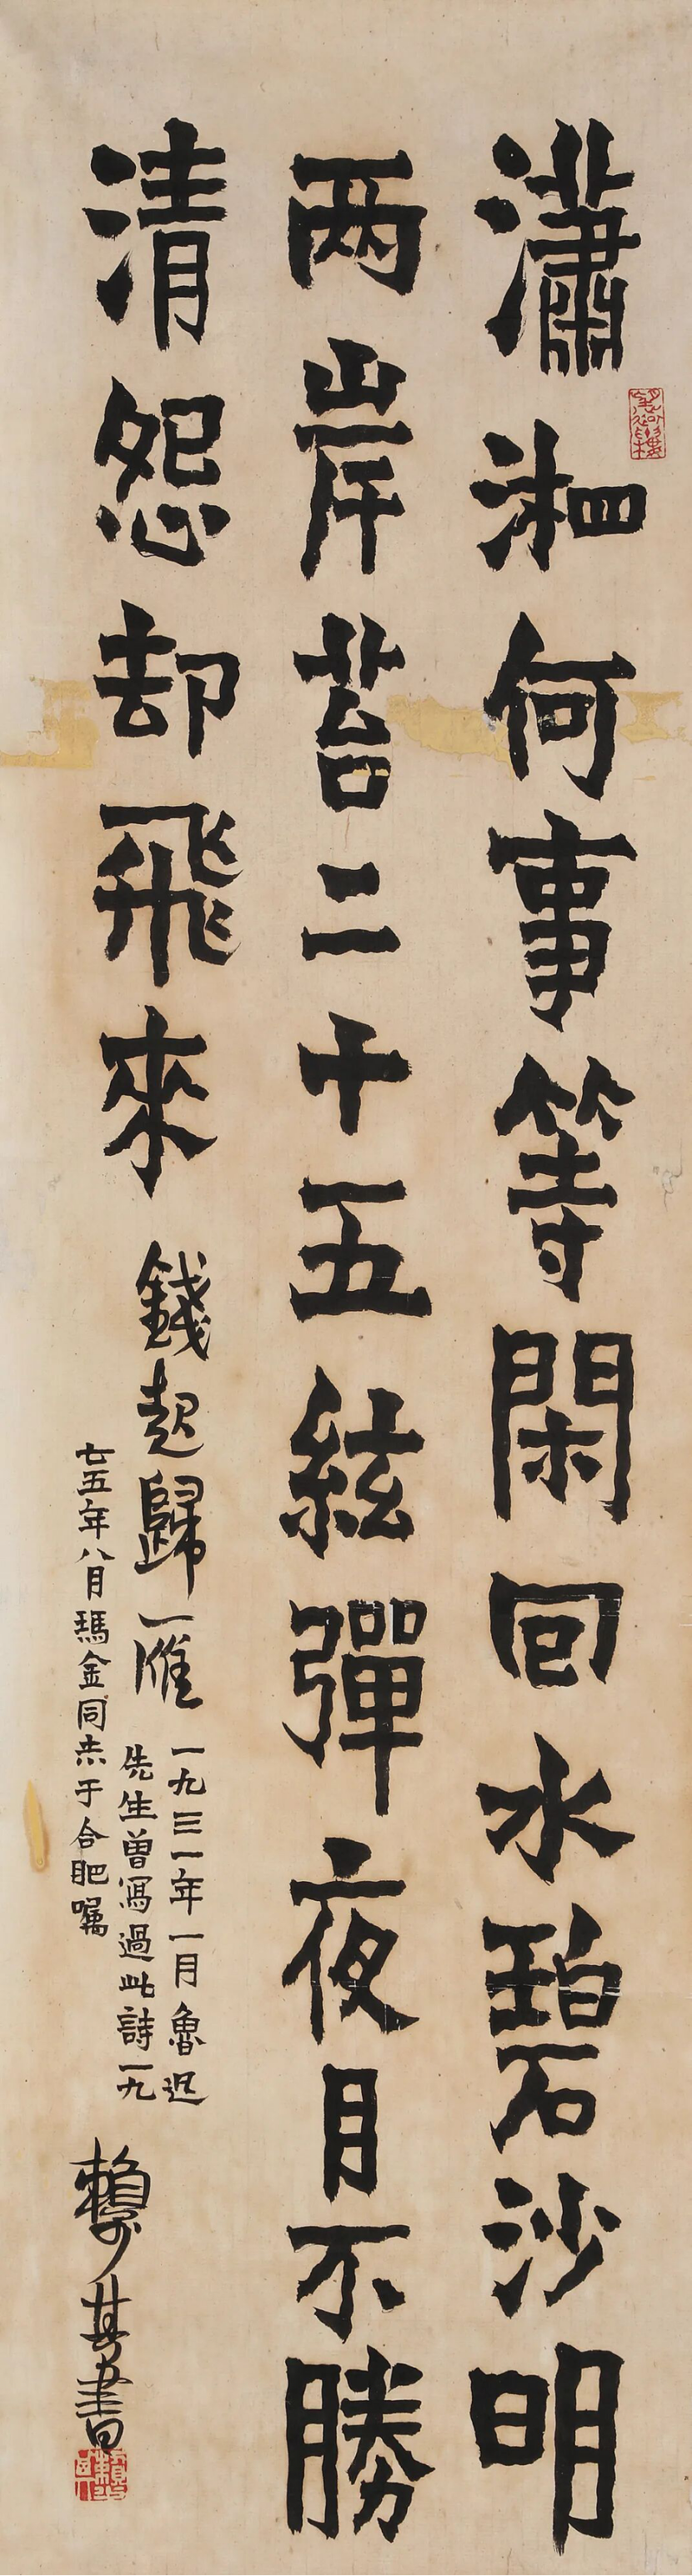 瀟湘何事等閑回水碧沙明
两岸苔二十五絃彈夜月不勝
清怨却飛來
錢起歸雁
一九三一年一月魯迅
先生曾寫過此詩一九
七五年八月瑪金同志于合肥嘱
賴少其書